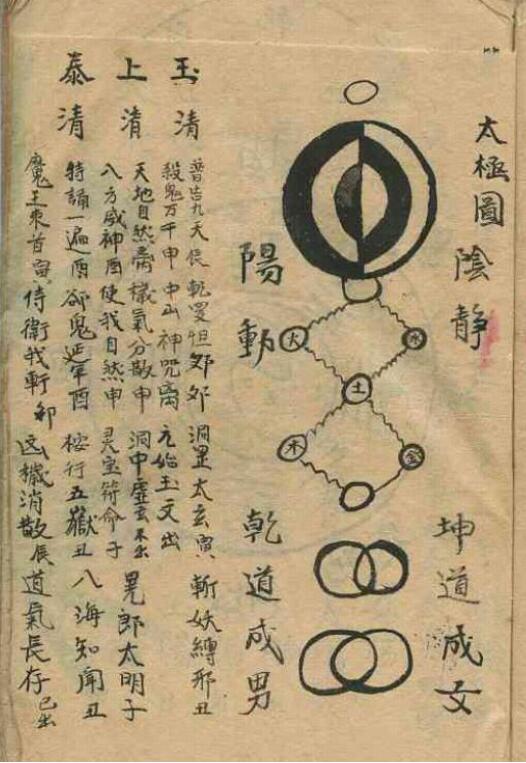 太極圖
陰靜
陽動
火
水
土
木
金
坤道成女
乾道成男
玉清
上清
泰清
普告九天 乾罗怛那卯 洞罡太玄寅 斬妖縛邪丑
殺鬼万千申 中山神咒离 元始玉文出
天地自然 穢氣分散申 洞中虛玄 出 晃郎太明子
八方威神酉 使我自然申 灵宝符命子
特誦一遍酉 卻鬼延年酉 桉行五嶽丑 八海知聞丑
魔王束首寅 侍衛我軒卯 凶穢消散辰 道氣長存已出